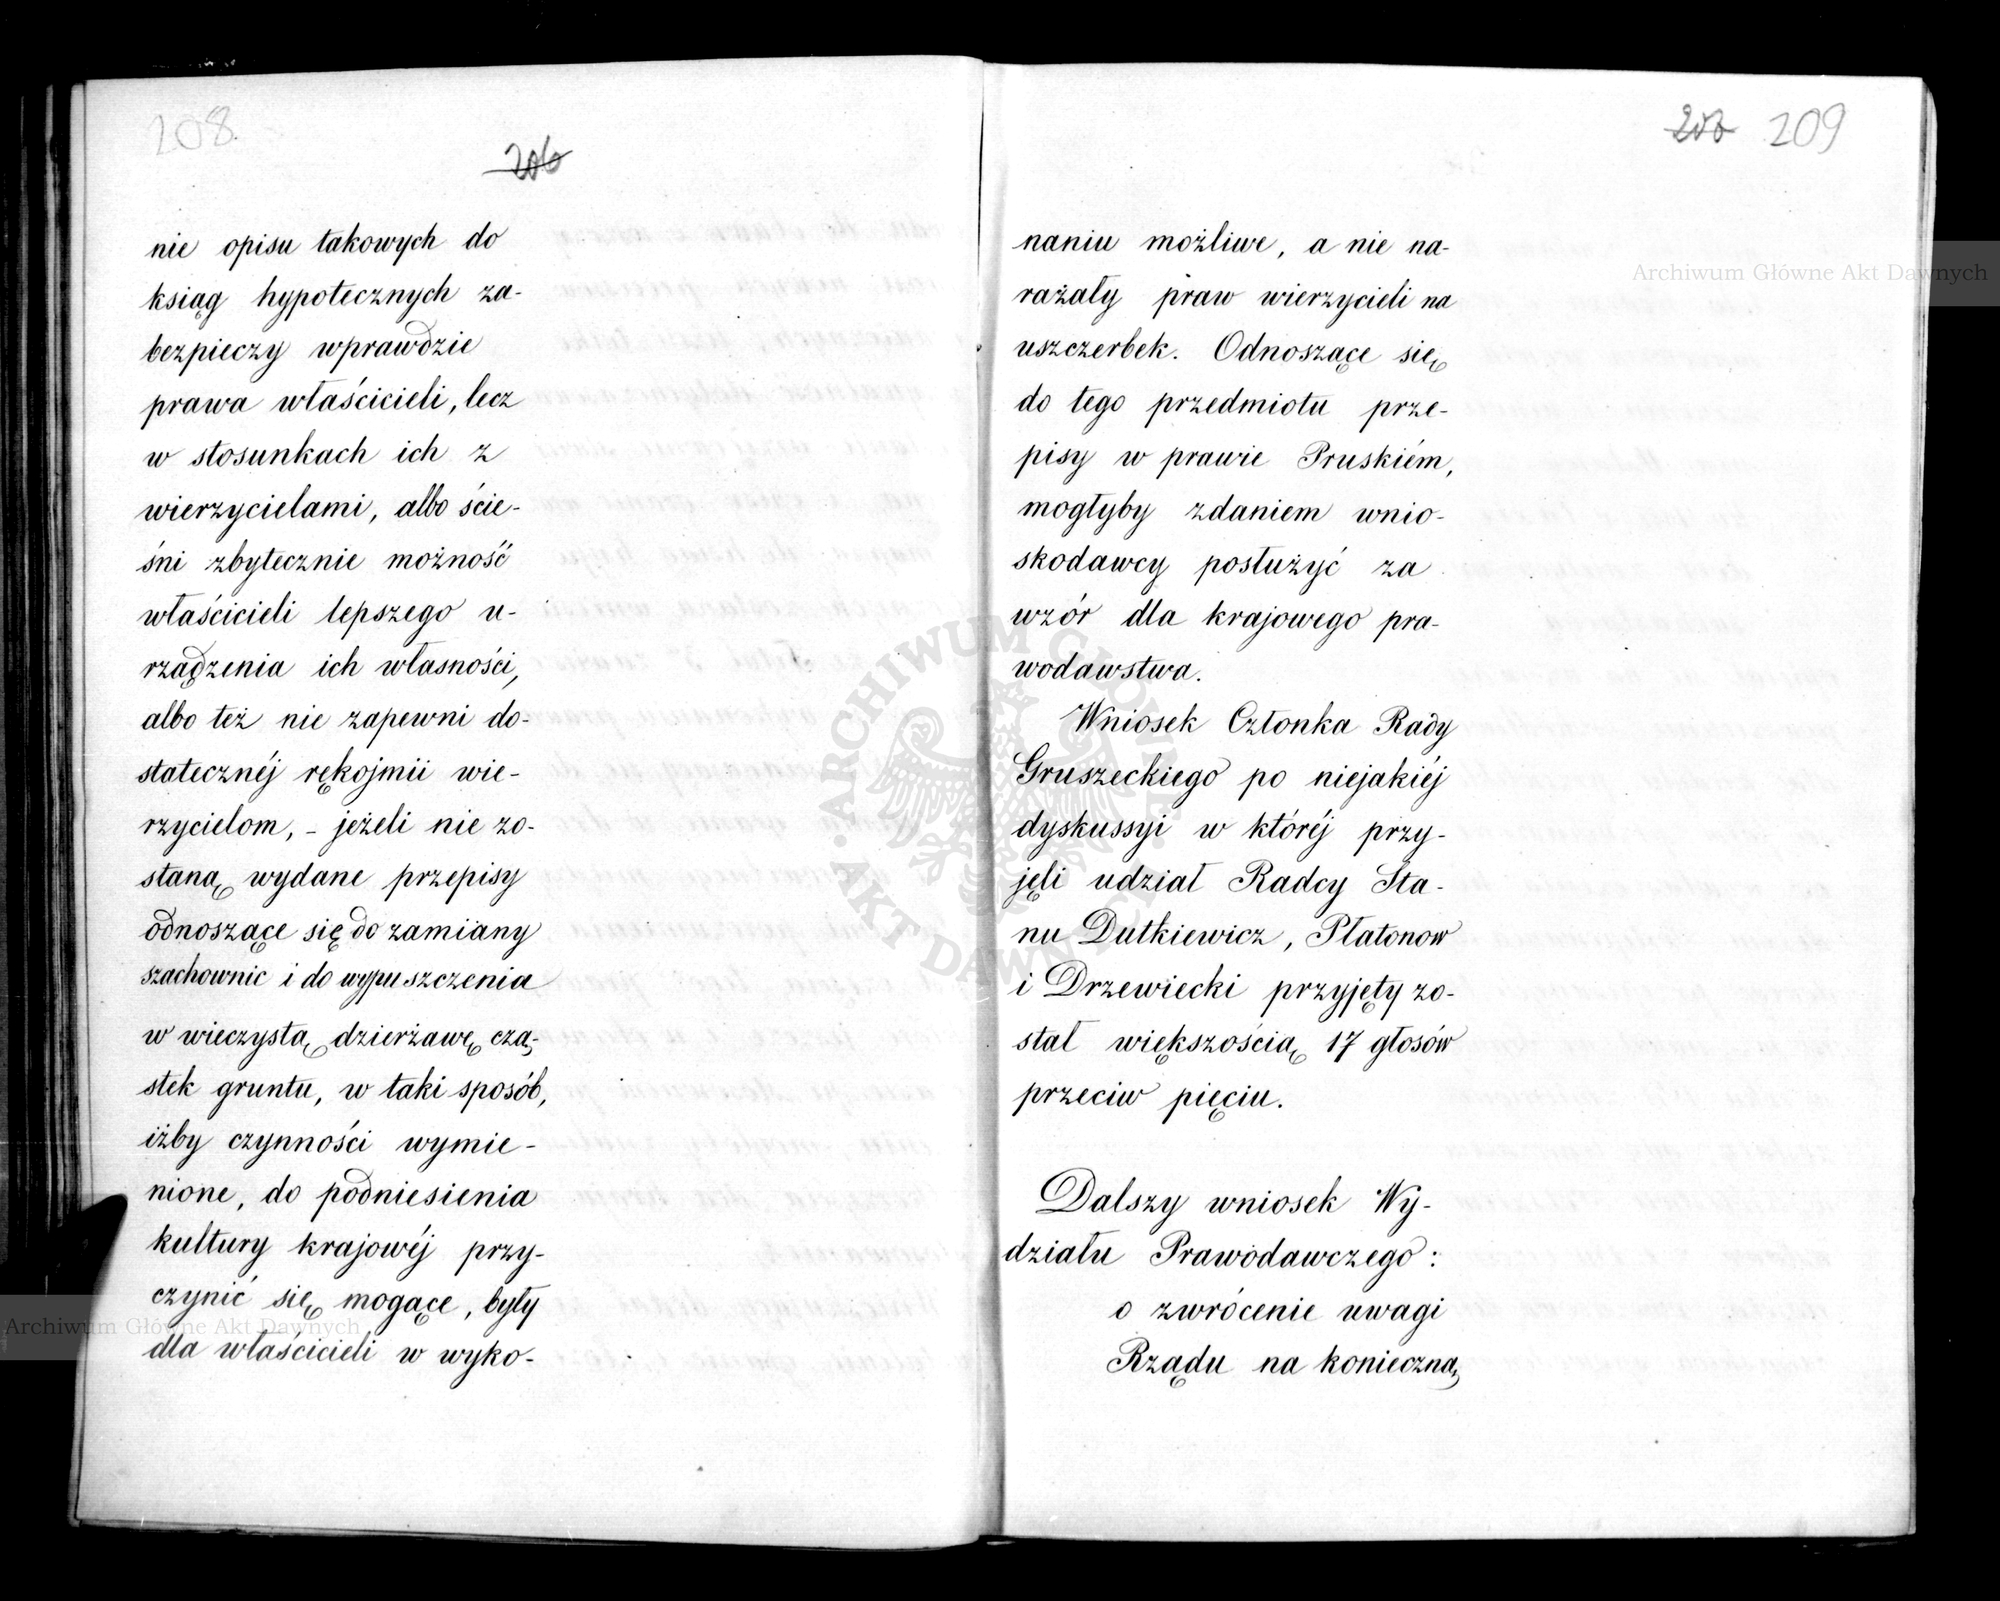 208
206
nie opisu takowych do
ksiąg hypotecznych za-
bezpieczy wprawdzie
prawa właścicieli, lecz
w stosunkach ich z
wierzycielami, albo ście-
śni zbytecznie możność
właścicieli lepszego u-
rządzenia ich własności,
albo też nie zapewni do-
statecznéj rękojmii wie-
rzycielom, - jeżeli nie zo-
staną wydane przepisy
odnoszące się do zamiany
szachownic i do wypuszczenia
w wieczystą dzierżawę czą-
stek gruntu, w taki sposób,
iżby czynności wymie-
nione, do podniesienia
kultury krajowéj przy-
czynić się mogące, były
dla właścicieli w wyko-
207 209
naniu możliwe, a nie na-
rażały praw wierzycieli na
uszczerbek. Odnoszące się
do tego przedmiotu prze-
pisy w prawie Pruskiém,
mogłyby zdaniem wnio-
skodawcy posłużyć za
wzór dla krajowego pra-
wodawstwa.
Wniosek Członka Rady
Gruszeckiego po niejakiéj
dyskussyi w któréj przy-
jęli udział Radcy Sta-
nu Dutkiewicz, Płatonow
i Drzewiecki przyjęty zo-
stał większością 17 głosów
przeciw pięciu.
Dalszy wniosek Wy-
działu Prawodawczego:
o zwrócenie uwagi
Rządu na konieczną
Archiwum Główne Akt Dawnych
Archiwum Główne Akt Dawnych
ARCHIWUM GŁÓWNE AKT DAWNYCH